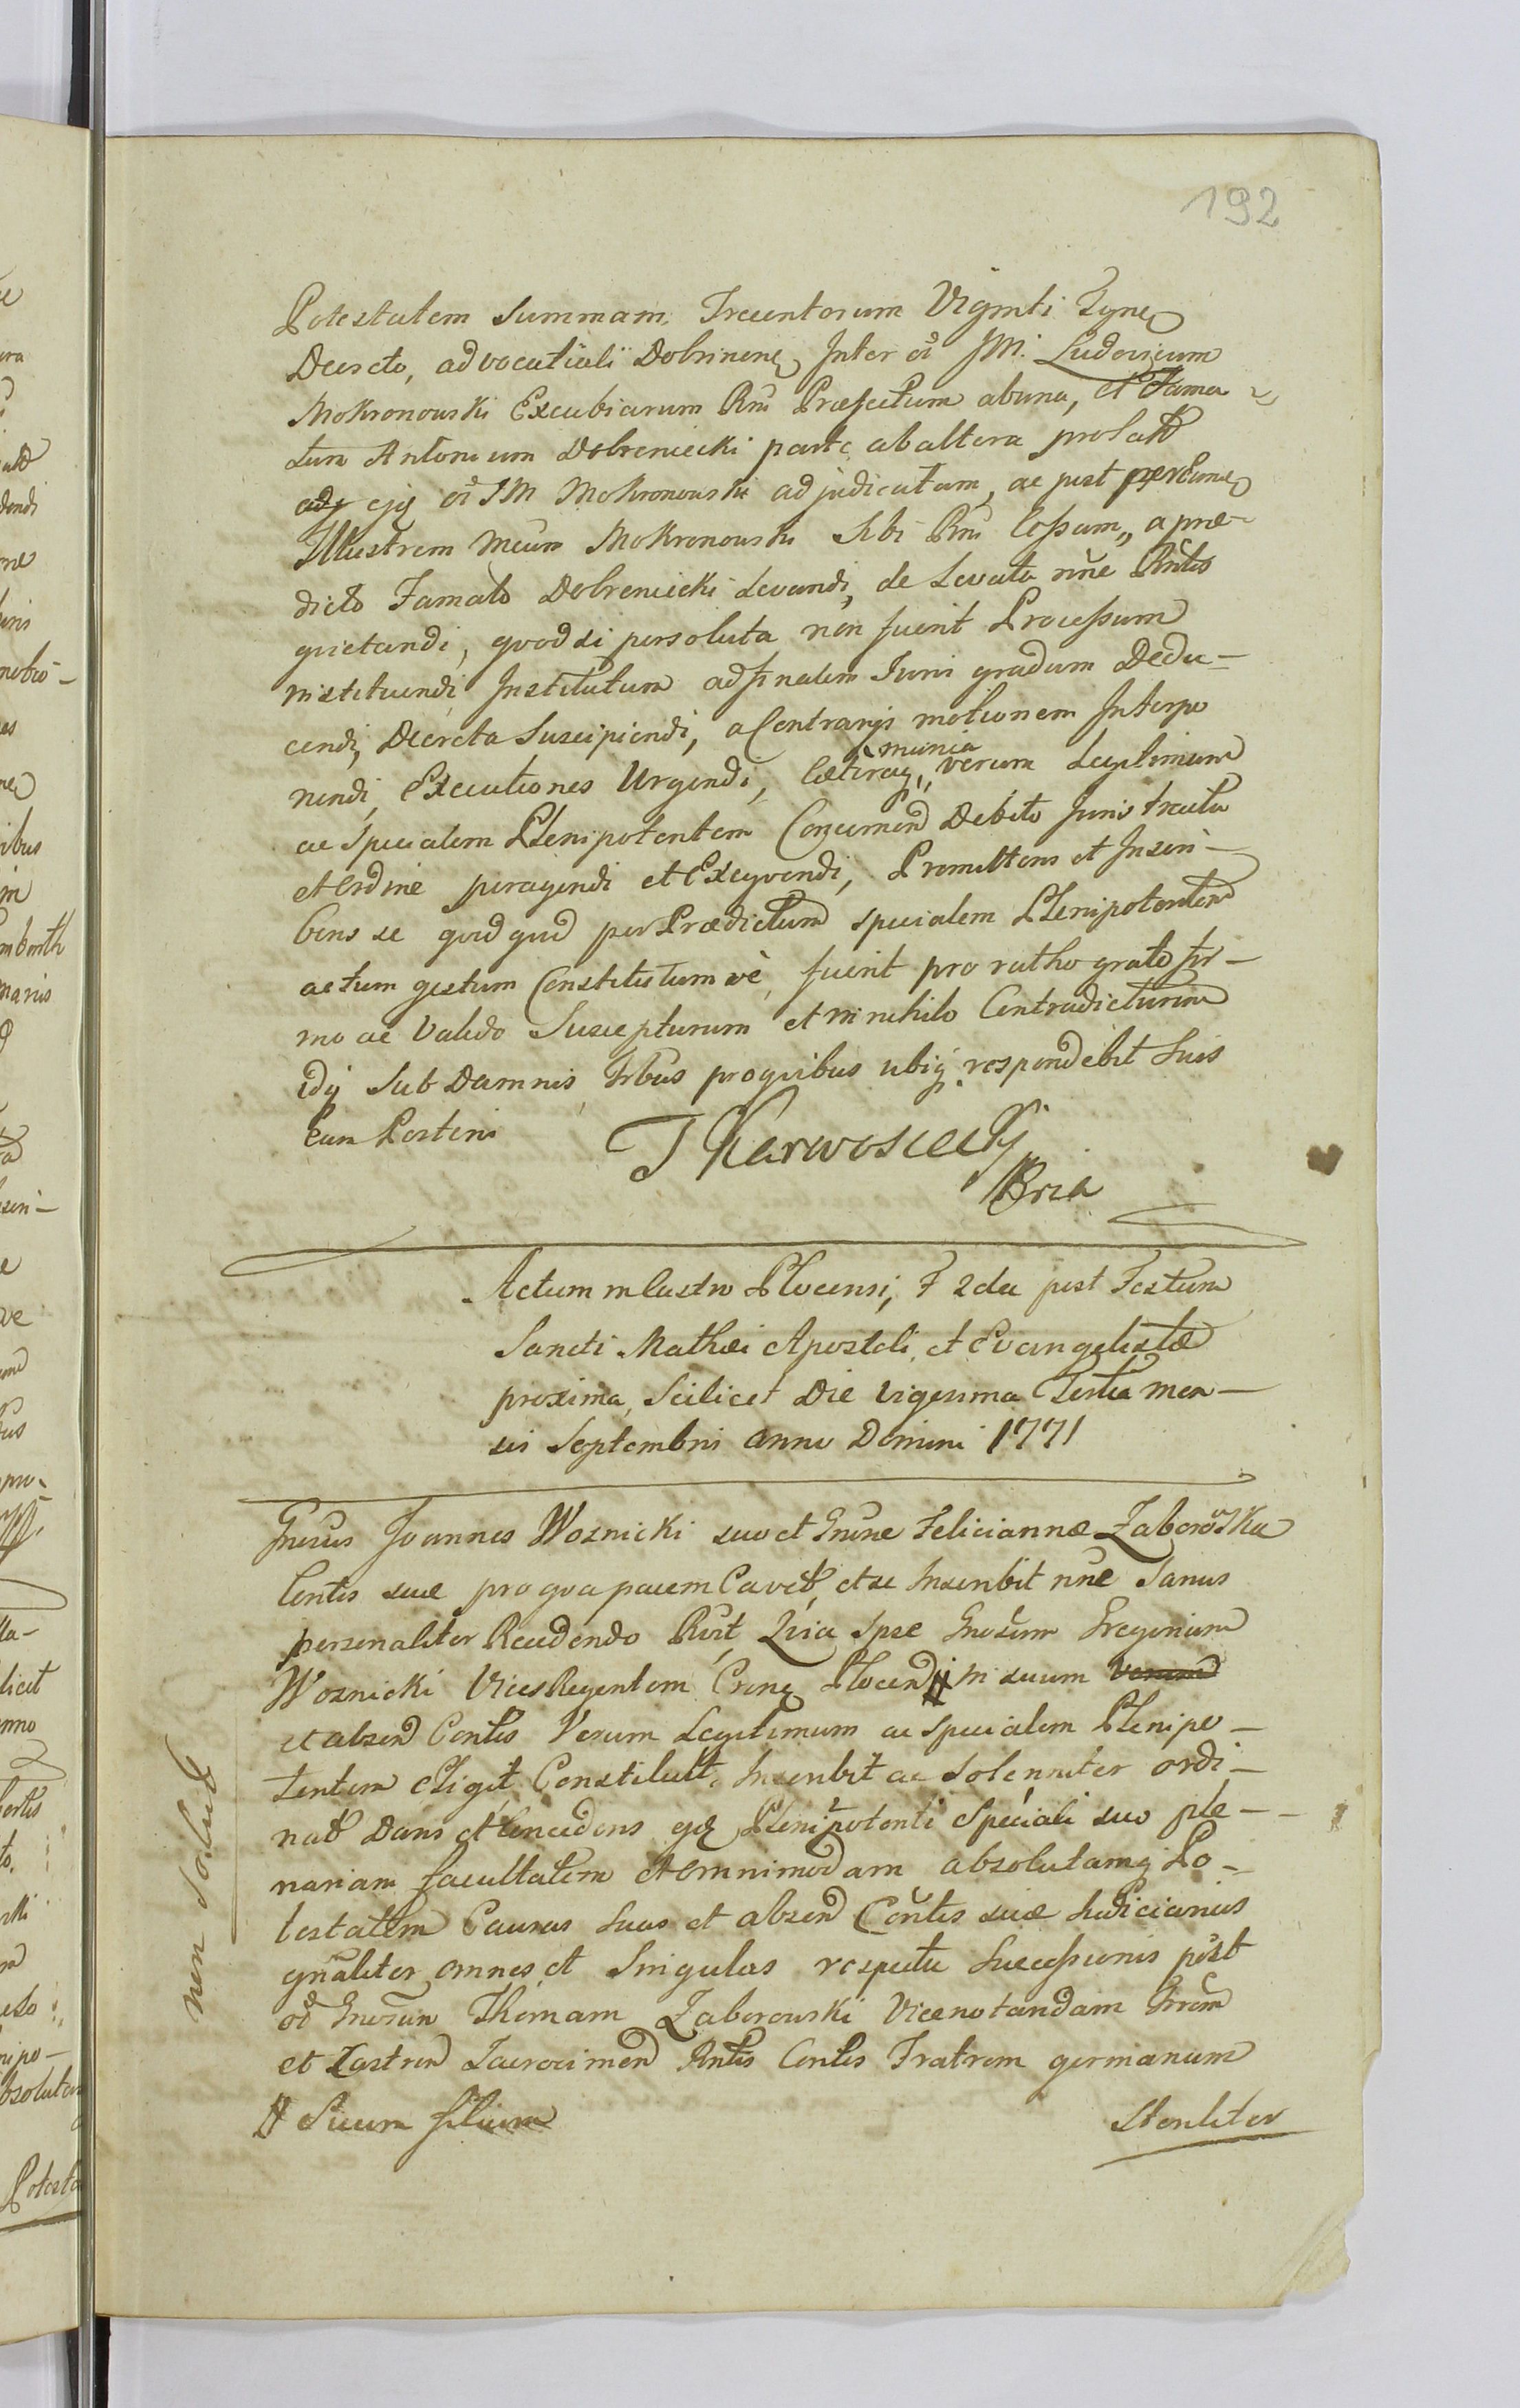 192
Potestatem Summam Trecentorum Viginti Tynf
Decreto, advocatialii Dobrinens Inter oi JM. Ludovicum
Mokronowski Excubiarum Rni Præfectum abuna, et Fama
tum Antonium Dobreniecki parte abaltera prolato
ejq oi JM Mokronowski adjudicatam, ac post
Illustrem Meum Mokronowski Sibi Rni Cessam, a præ-
dicto Famato Dobreniecki Levandi, de Levata nne Rntis
quietandi, quod si persoluta non fuerit Processum
instituendi Institutum adfinalem Iuris gradum Dedu-
cendi, Decreta Suscipiendi, a Contrarijs motionem Interpo
nendi, Executiones Urgendi, Cæteraq munia verum Legitimum
ac Specialem Plenipotentem Concernen Debito Juris tractu
et Ordine peragendi et Exeqvendi, Promittens et Inscri-
bens se quidquid per Prædictum specialem Plenipotentem
actum gestum Constitutum vè fuerit pro ratho grato fir-
mo ac Valido Suscepturum et in nihilo Contradicturum
idq Sub Damnis Trbus proquibus ubiq respondebit Suis
cum Posteris
J Karwosiecky
Actum in Castro Plocensi, F 2da post Festum
Sancti Mathæi Apostoli, et Evangelistæ
proxima, Scilicet Die Vigesima Tertia men-
sis Septembris Anno Domini 1771
Gnrsus Joannes Woznicki suo et Gnrne Feliciannæ Zaborowska
Contis suæ pro qva pacem Cavet, et se Inscribit nne Sanus
personaliter Recedendo Rvit, Quia Ipse Gnosum Gregorium
Woznicki Vices Regentem Crens Plocen # in suum
et absen Contis Verum Legitimum ac Specialem Plenipo-
tentem Eligit Constituit, Inscribit ac Solenniter ordi-
nat Dans et Concedens ejq Plenipotenti Speciali suo ple-
nariam facultatem et Omnimodam absolutamq Po-
testatem Causas Suas et absen Contis suæ Judiciarias
gnaliter omnes et Singulas respectu Successionis post
od Gnosum Thomam Zaborowski Vicenotandam
et Castren Rntis Contis Fratrem germanum
# Suum filium
Steriliter
non Solut